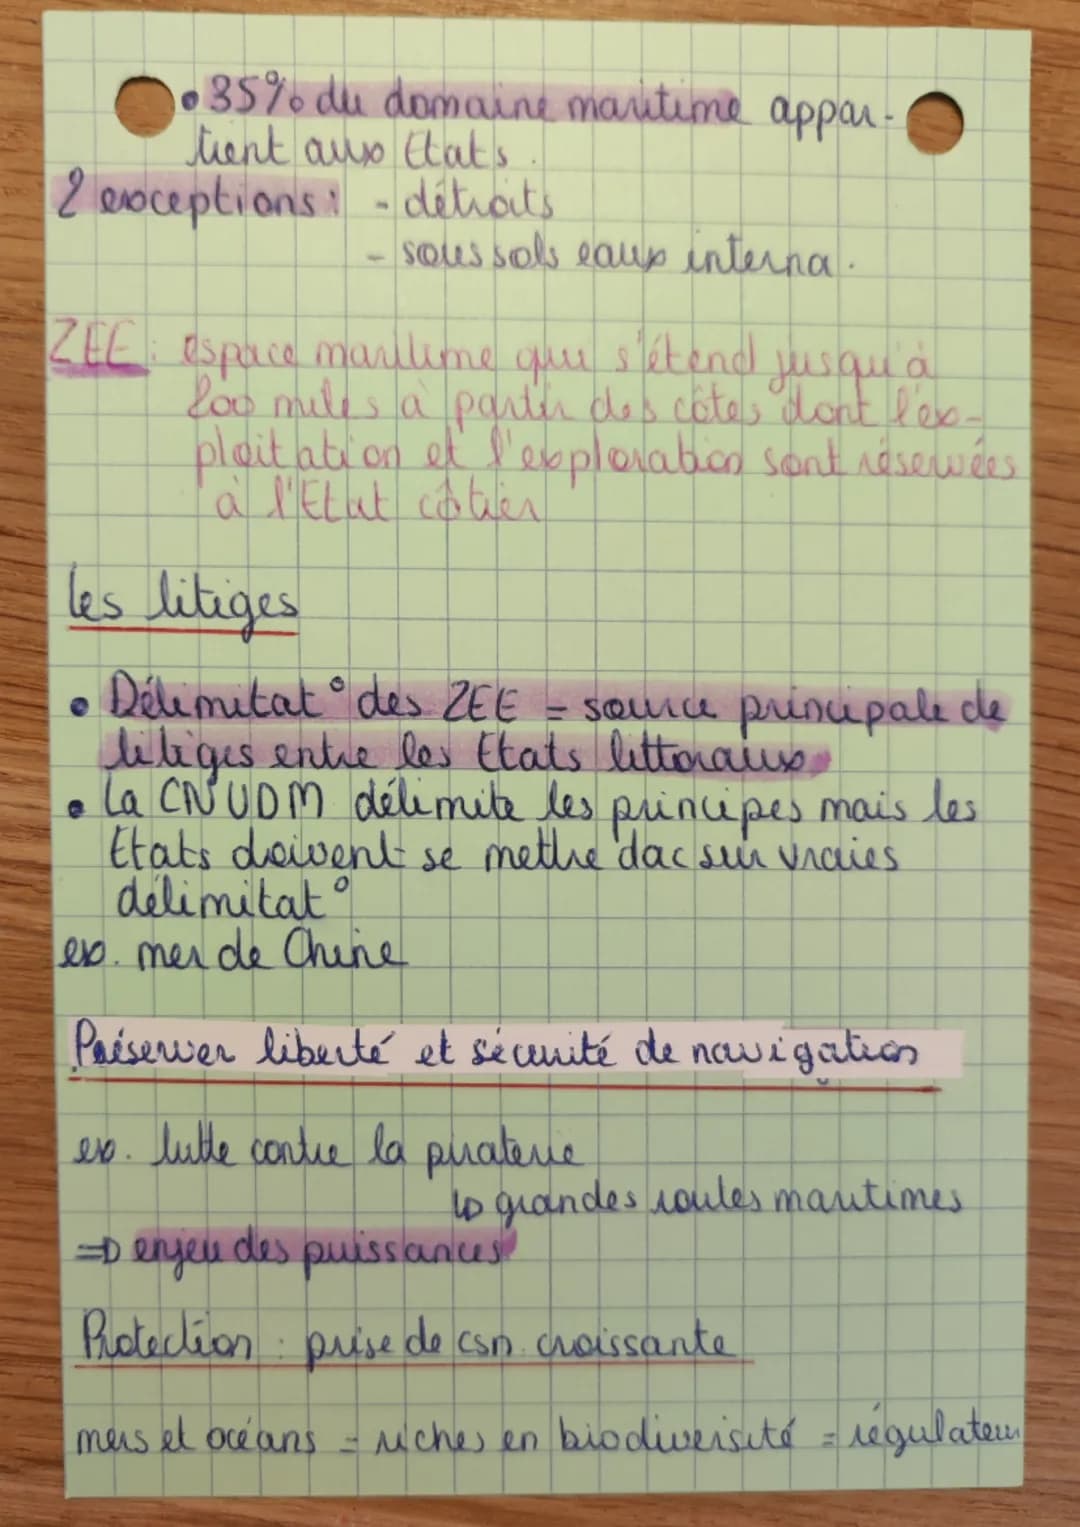 • 35% du domaine maritime appar-
tient aux Etats.
2 exceptions : - détroits
- sous sols eaux interna.
ZEE : espace maritime qui s'étend jusqu'à
200 miles à partir des côtes dont l'ex-
ploitation et l'exploration sont réservées
à l'Etat côtier
les litiges
• Délimitat° des ZEE = source principale de
litiges entre les Etats littoraux
• La CNUDM délimite les principes mais les
Etats doivent se mettre dac sur vraies
délimitat°
ex. mer de Chine
Préserver liberté et sécurité de navigation
ex. lutte contre la piraterie
↳ grandes routes maritimes
⇒ enjeu des puissances
Protection : prise de csn croissante
mers et océans = riches en biodiversité = régulateur